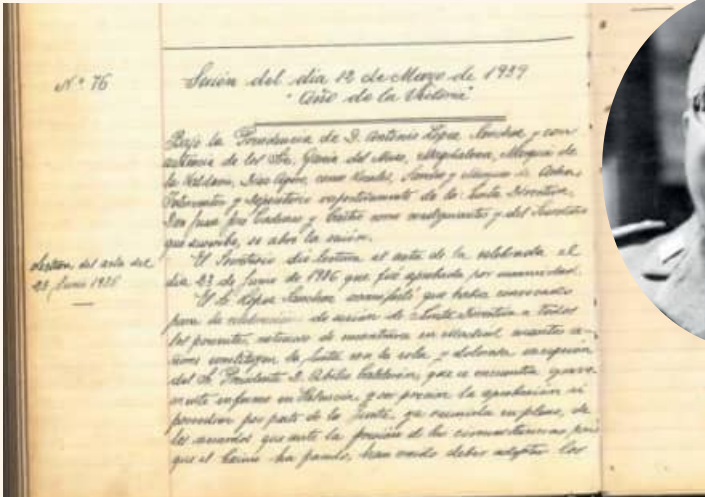 Nº 76
Sesión del día 12 de Marzo de 1939
"Año de la Victoria"
Bajo la Presidencia de D. Antonio López Sánchez y con
asistencia de los Srs. García del Moro, Magdalena, Marqués de
la Valdavia, Díaz como Vocales,
Interventor y Depositario respectivamente de la Junta Directiva,
Don Juan José Cadenas y Castro como y del Secretario
que suscribe, se abre la sesión.
Lectura del acta del
23 Junio 1936
El Secretario dio lectura al acta de la celebrada el
día 23 de Junio de 1936 que fué aprobada por unanimidad.
El Sr. López Sánchez manifestó que había convocado
para la celebración de sesión de Junta Directiva a todos
los presentes, de encontrarse en Madrid cuantos
constituyen la Junta con la sola y dolorosa excepción
del Sr. Presidente D. Abilio Calderón, que se encuentra
enfermo en Palencia, y en procura la aprobación si
procediera por parte de la Junta, ya reunida en pleno, de
los acuerdos que ante la presión de las circunstancias por
que el Casino ha pasado, han creído deber adoptar los